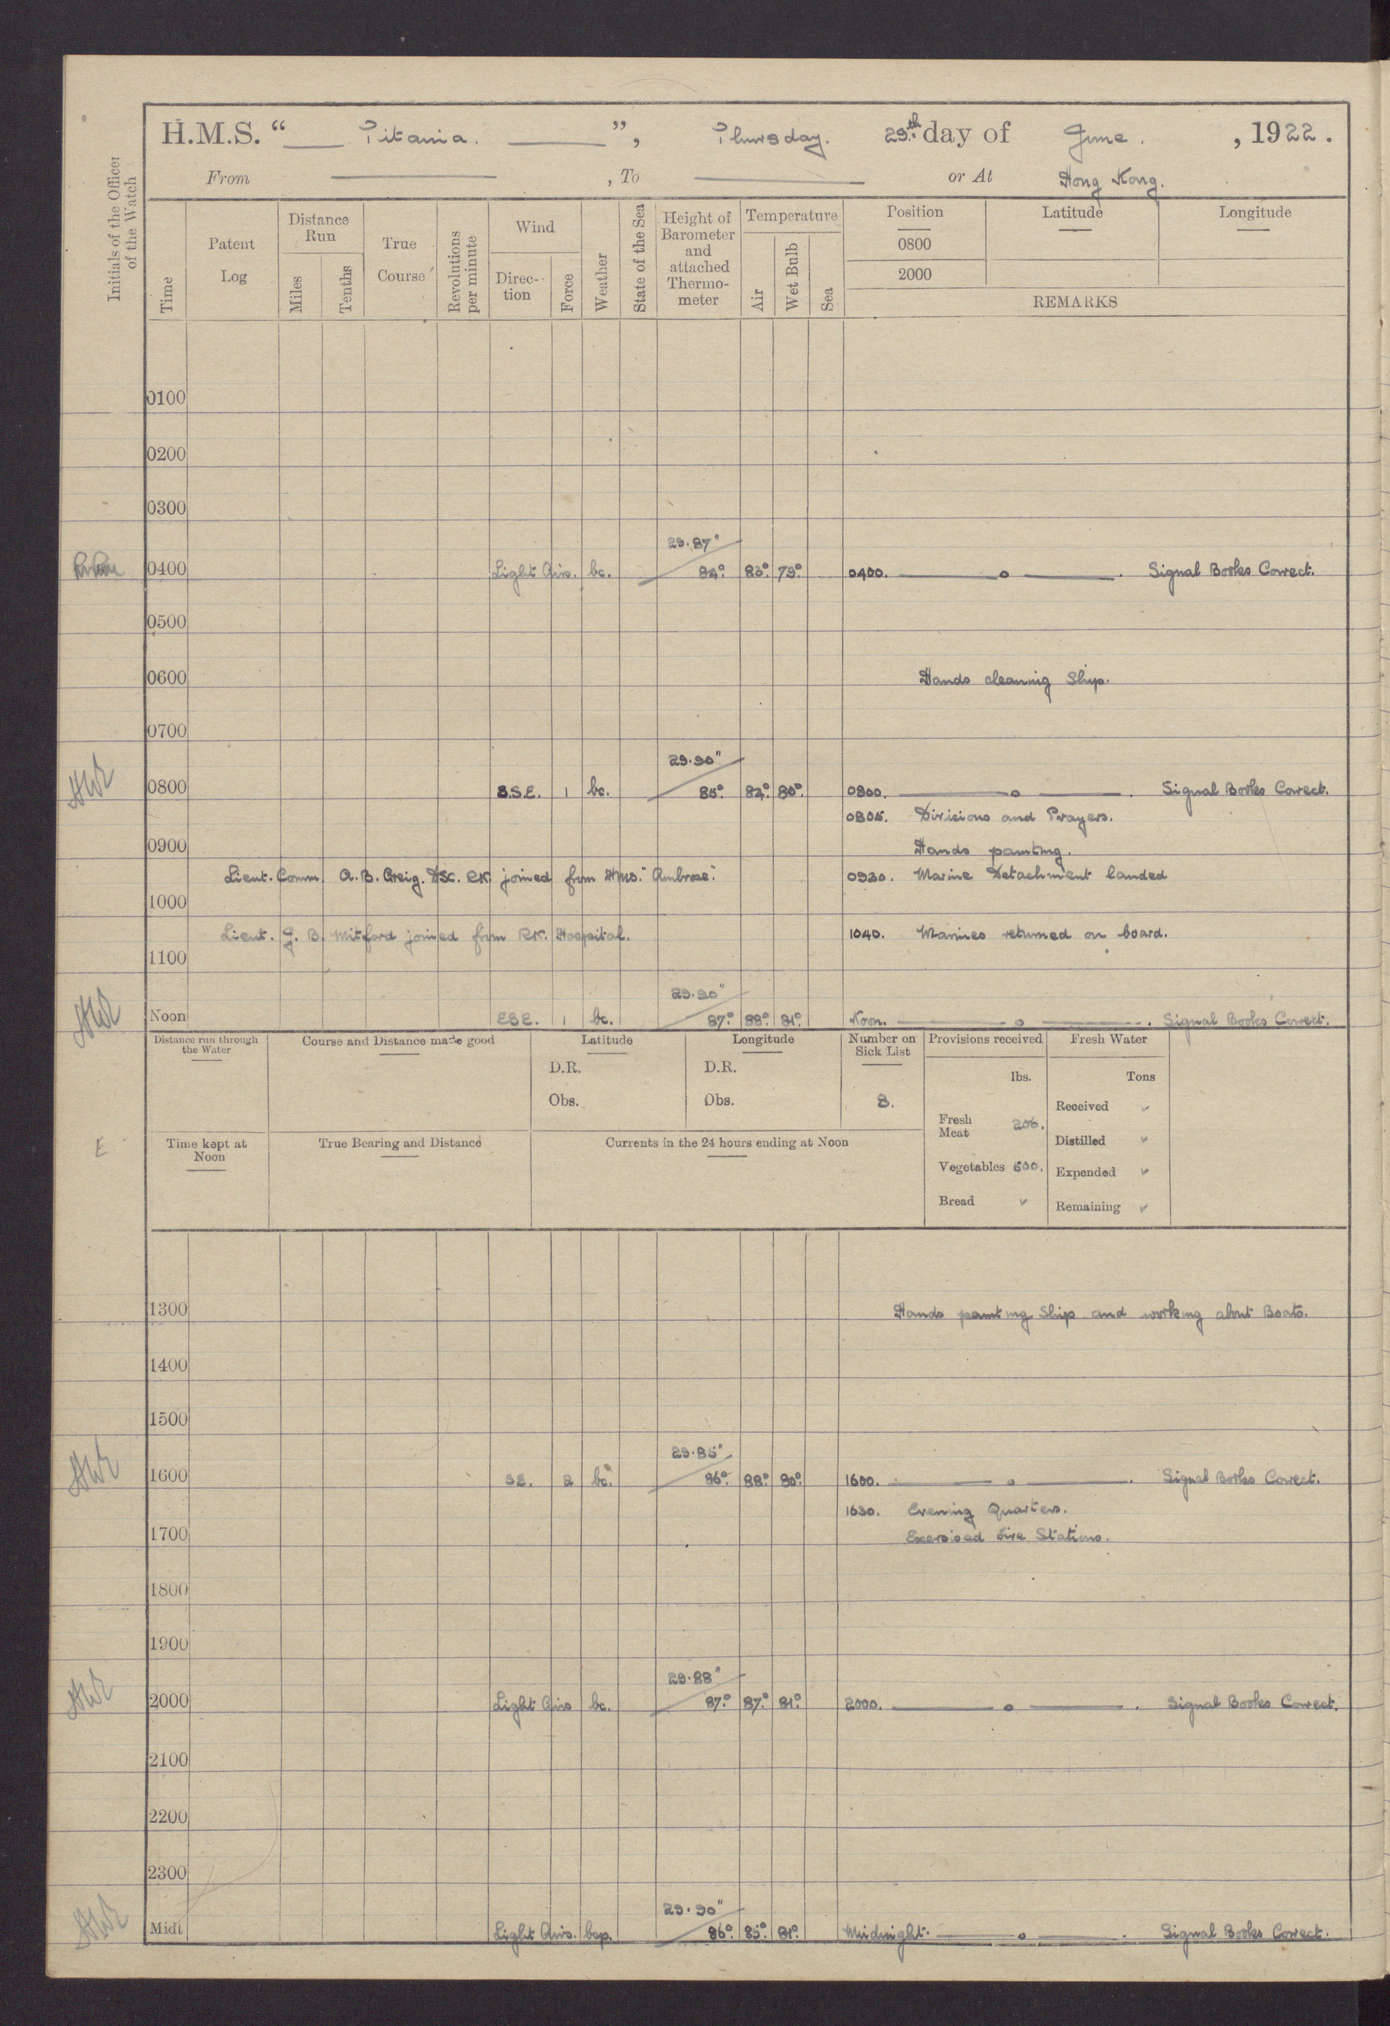 H.M.S. “ Titania. ”, Thursday. 29th day of June. , 1922.
From , To or At Hong Kong.
Initials of the Officer of the Watch
Time
Patent Log
Distance Run
Miles
Tenths
True Course
Revolutions per minute
Wind
Direction
Force
Weather
State of the Sea
Height of Barometer and attached Thermometer
Temperature
Air
Wet Bulb
Sea
Position
0800
2000
Latitude
Longitude
REMARKS
0100
0200
0300
29.87"
0400 Light Airs. bc. 84°. 83°. 79°. 0400. o . Signal Books Correct.
0500
0600 Hands cleaning Ship.
0700
29.90"
0800 S.S.E. 1 bc. 85°. 82°. 80°. 0800. o . Signal Books Correct.
0805. Divisions and Prayers.
0900 Hands painting.
Lieut. Comm. A.B. Greig. DSC. RN. joined from HMS. "Ambrose". 0930. Marine Detachment landed
1000
Lieut. G. B. Mitford joined from RN. Hospital. 1040. Marines returned on board.
1100
29.90"
Noon ESE. 1 bc. 87°. 88°. 81°. Noon. o . Signal Books Correct.
Distance run through the Water
Course and Distance made good
Latitude
D.R.
Obs.
Longitude
D.R.
Obs.
Number on Sick List
8.
Provisions received
lbs.
Fresh Meat 206.
Vegetables 600.
Bread ✓
Fresh Water
Tons
Received ✓
Distilled ✓
Expended ✓
Remaining ✓
E
Time kept at Noon
True Bearing and Distance
Currents in the 24 hours ending at Noon
1300 Hands painting Ship and working about Boats.
1400
1500
29.85"
1600 SE. 2 bc. 86°. 88°. 80°. 1600. o . Signal Books Correct.
1630. Evening Quarters.
1700 Exercised Fire Stations.
1800
1900
29.88"
2000 Light Airs bc. 87°. 87°. 81°. 2000. o . Signal Books Correct.
2100
2200
2300
29.90"
Midt Light Airs. bcp. 86°. 85°. 81°. Midnight. o . Signal Books Correct.